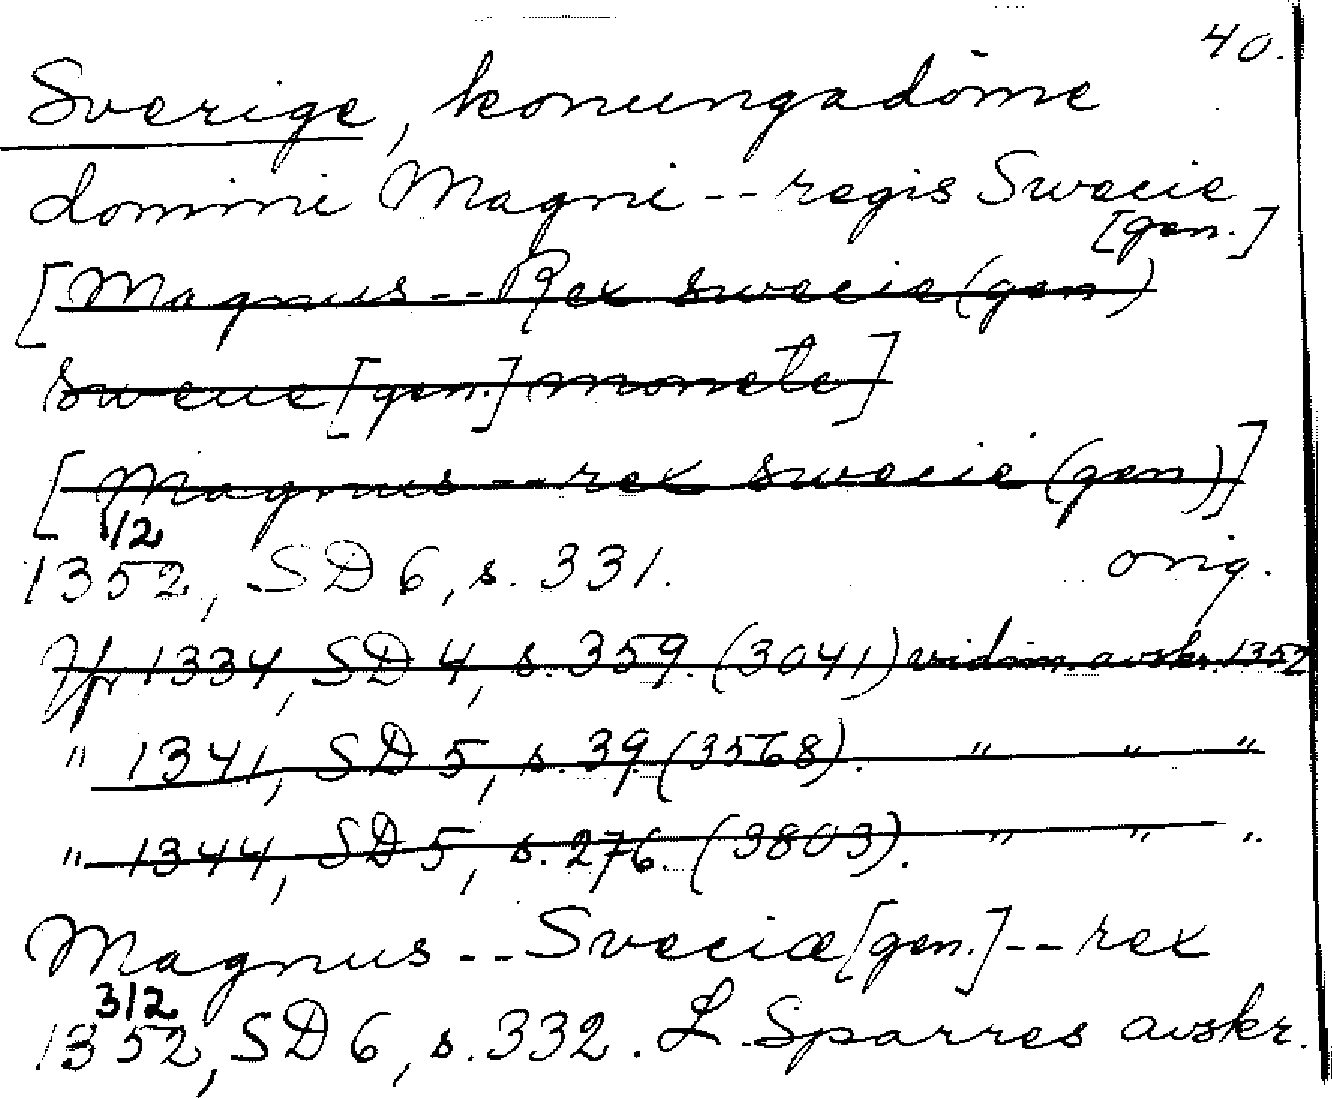 40.
Sverige, konungadöme
domini Magni -- regis Swecie
[gen.]
[Magnus -- Rex swecie (gen)
swecie [gen.] monete]
[Magnus -- rex swecie (gen)]
1/2
1352, SD 6, s. 331. orig.
Jfr 1334, SD 4, s. 359. (3041) vidim. avskr. 1352
" 1341, SD 5, s. 39. (3568). " " "
" 1344, SD 5, s. 276. (3803). " " "
Magnus -- Sveciæ [gen.] -- rex
3/2
1352, SD 6, s. 332. L Sparres avskr.